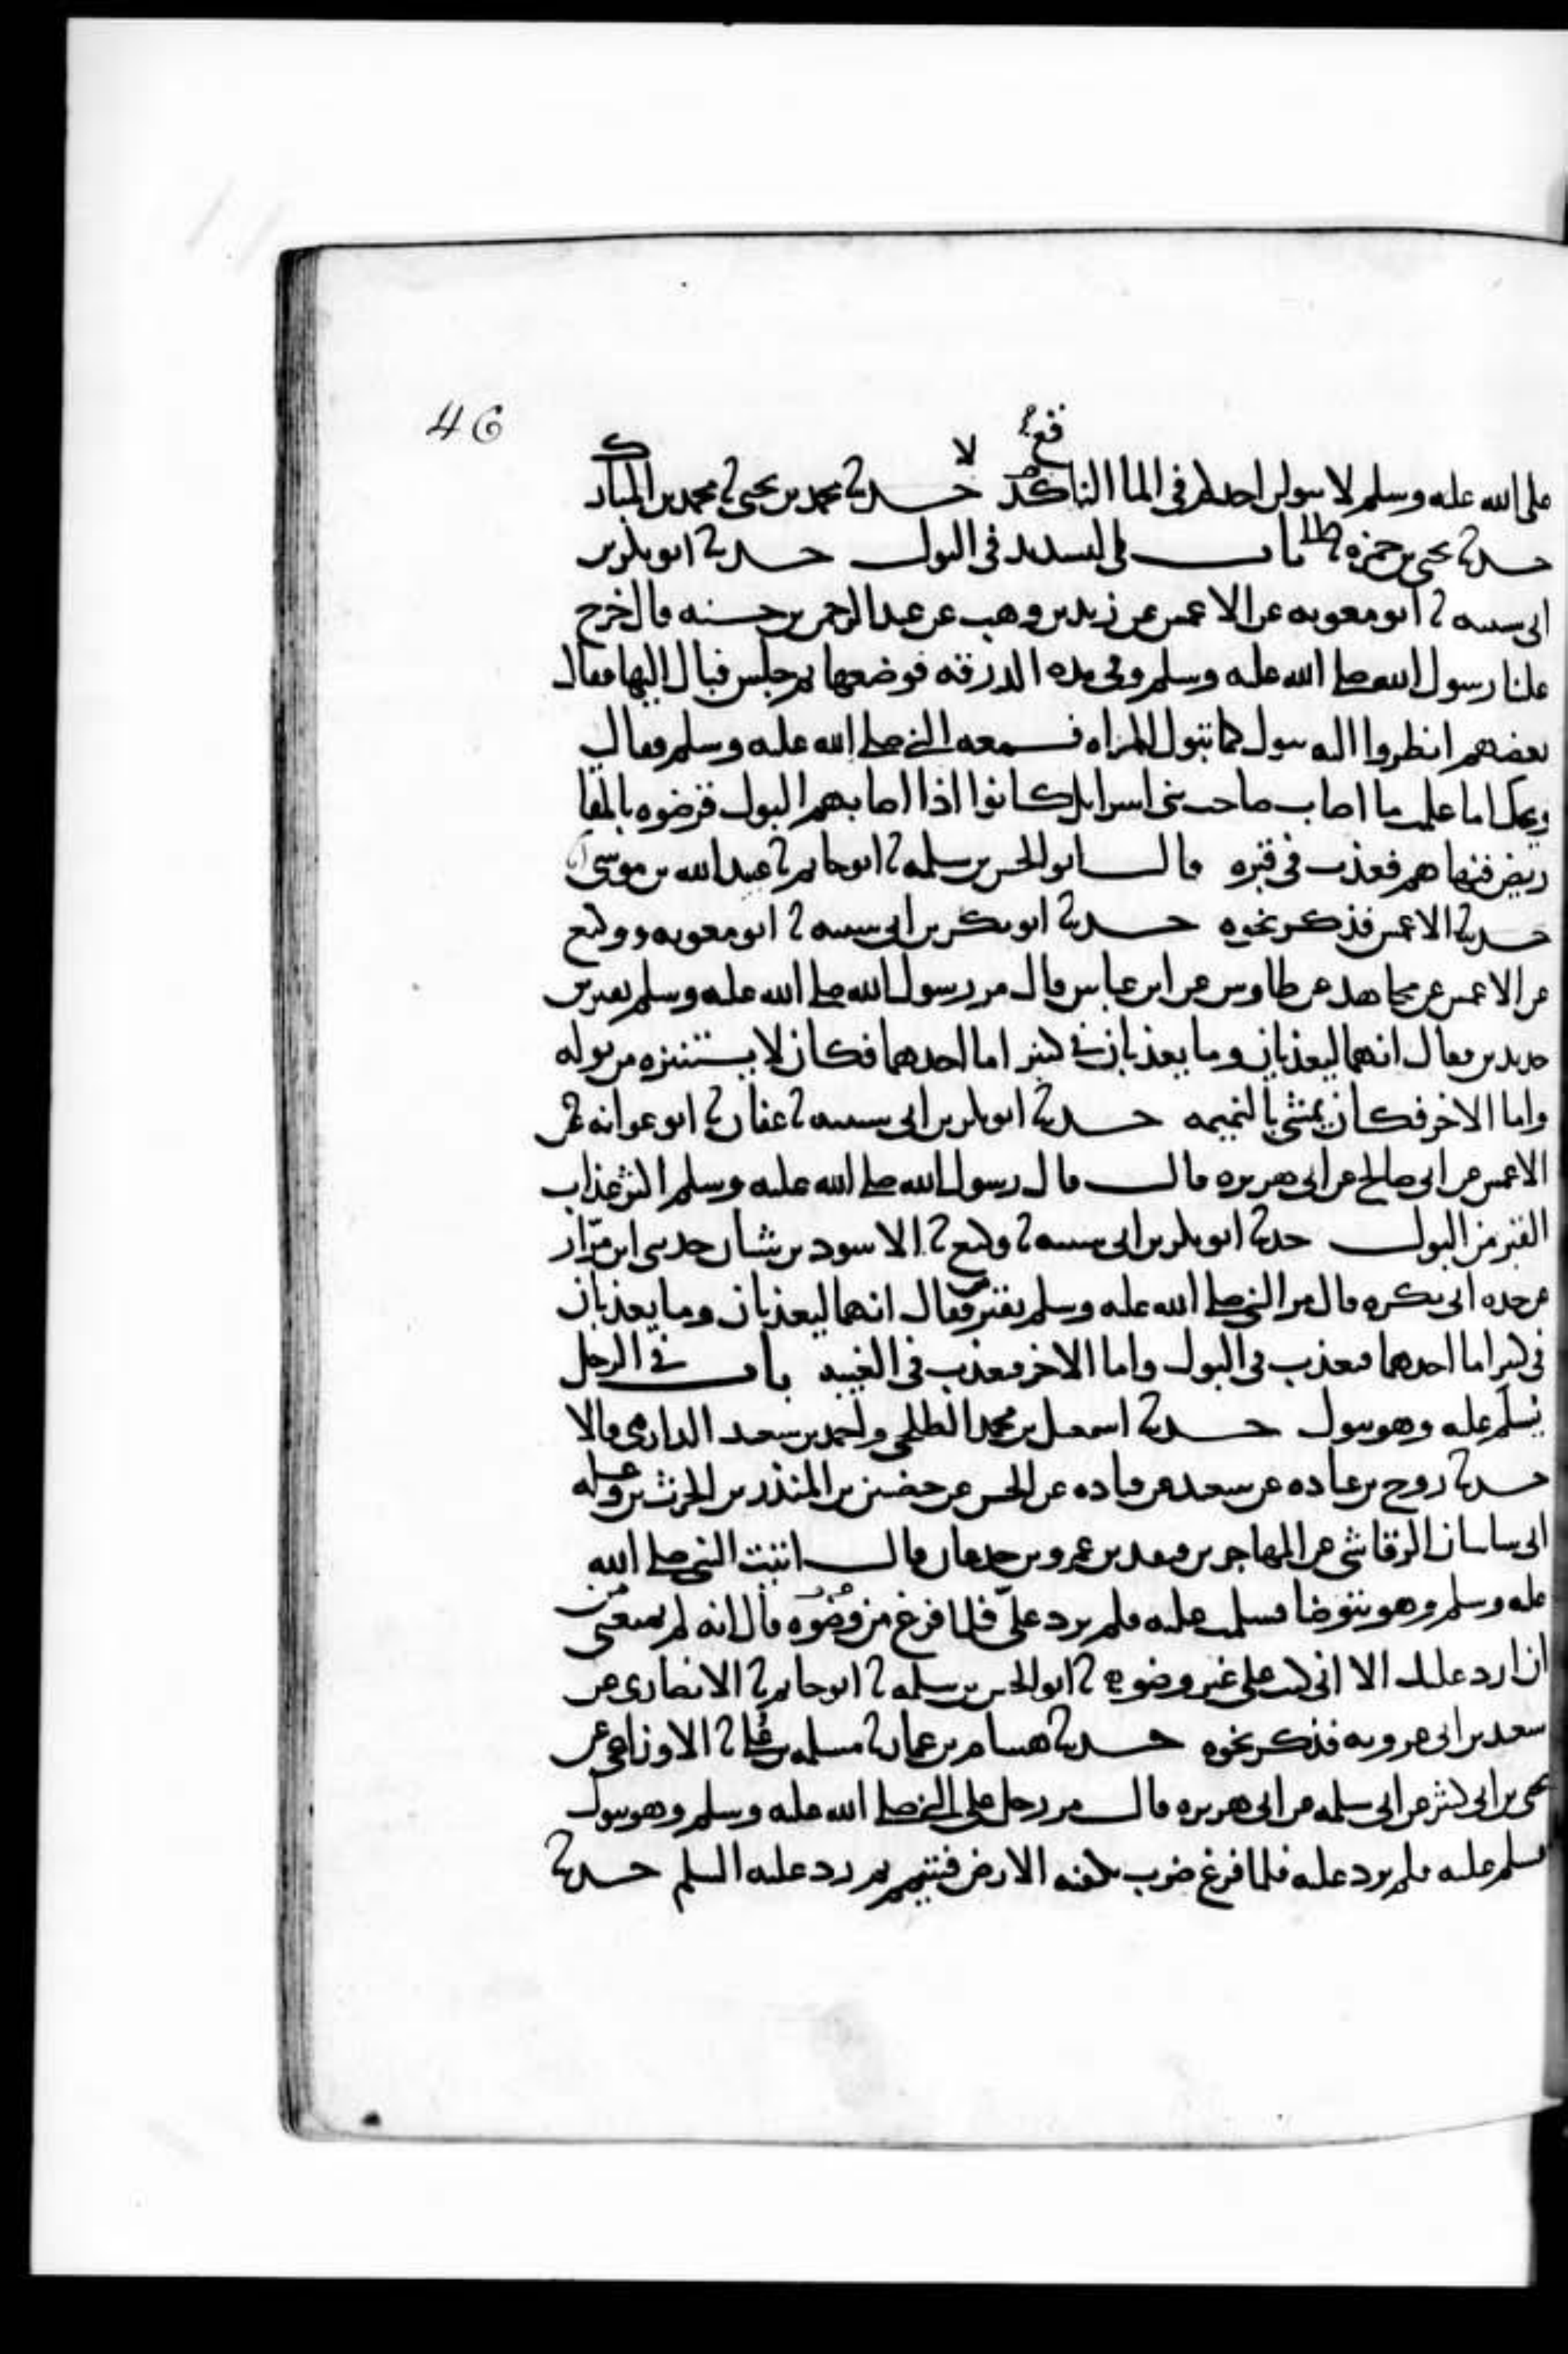 46
صلى الله عليه وسلم لا يبولن احدكم في الماء الناقع حدثنا محمد بن يحيى ثنا محمد بن المبارك
حدثنا يحيى بن حمزه باب في التشديد في البول حدثنا ابو بكر بن
ابي شيبه ثنا ابو معويه عن الاعمش عن زيد بن وهب عن عبد الرحمن بن حسنه قال خرج
علينا رسول الله صلى الله عليه وسلم وفي يده الدرقه فوضعها ثم جلس فبال اليها فقال
بعضهم انظروا اليه يبول كما تبول المراه فسمعه النبي صلى الله عليه وسلم فقال
ويحك اما علمت ما اصاب صاحب بني اسرايل كانوا اذا اصابهم البول قرضوه بالمقا
ريض فنهاهم فعذب في قبره قال ابو الحسن بن سلمه ثنا ابو حاتم ثنا عبيد الله بن موسى
حدثنا الاعمش فذكر نحوه حدثنا ابو بكر بن ابي شيبه ثنا ابو معويه ووكيع
عن الاعمش عن مجاهد عن طاوس عن ابن عباس قال مر رسول الله صلى الله عليه وسلم بقبرين
جديدين فقال انهما ليعذبان وما يعذبان في كبير اما احدهما فكان لا يستنزه من بوله
واما الاخر فكان يمشي بالنميمه حدثنا ابو بكر بن ابي شيبه ثنا عفان ثنا ابو عوانه عن
الاعمش عن ابي صالح عن ابي هريره قال قال رسول الله صلى الله عليه وسلم اكثر عذاب
القبر من البول حدثنا ابو بكر بن ابي شيبه ثنا وكيع ثنا الاسود بن شيبان حدثني ابن مرار
عن جده ابي بكره قال مر النبي صلى الله عليه وسلم بقبرين فقال انهما ليعذبان وما يعذبان
في كبير اما احدهما فيعذب في البول واما الاخر فيعذب في الغيبه باب في الرجل
يسلم عليه وهو يبول حدثنا اسمعيل بن محمد الطلحي واحمد بن سعيد الدارمي قالا
حدثنا روح بن عباده عن سعيد عن قتاده عن الحسن عن حضين بن المنذر بن الحرث بن وعله
ابي ساسان الرقاشي عن المهاجر بن قنفد بن عمرو بن جدعان قال اتيت النبي صلى الله
عليه وسلم وهو يتوضا فسلمت عليه فلم يرد علي فلما فرغ من وضوه قال انه لم يمنعني من
ان ارد عليك الا اني كنت على غير وضوء ثنا ابو الحسن بن سلمه ثنا ابو حاتم ثنا الانصاري عن
سعيد بن ابي عروبه فذكر نحوه حدثنا هشام بن عمار ثنا مسلمه بن علي ثنا الاوزاعي عن
يحيى بن ابي كثير عن ابي سلمه عن ابي هريره قال مر رجل على النبي صلى الله عليه وسلم وهو يبول
فسلم عليه فلم يرد عليه فلما فرغ ضرب بكفيه الارض فتيمم ثم رد عليه السلم حدثنا